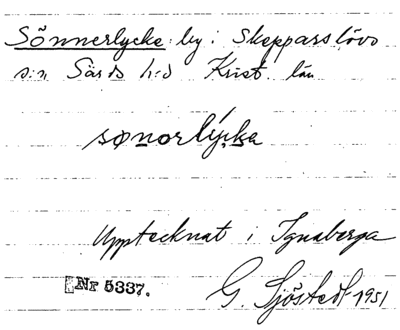 Sönnerlycke by i Skepparslövs
s:n Gärds h:d Krist. län
sønorlýcka
Upptecknat i Ignaberga
Nr 5337.
G. Sjöstedt 1951